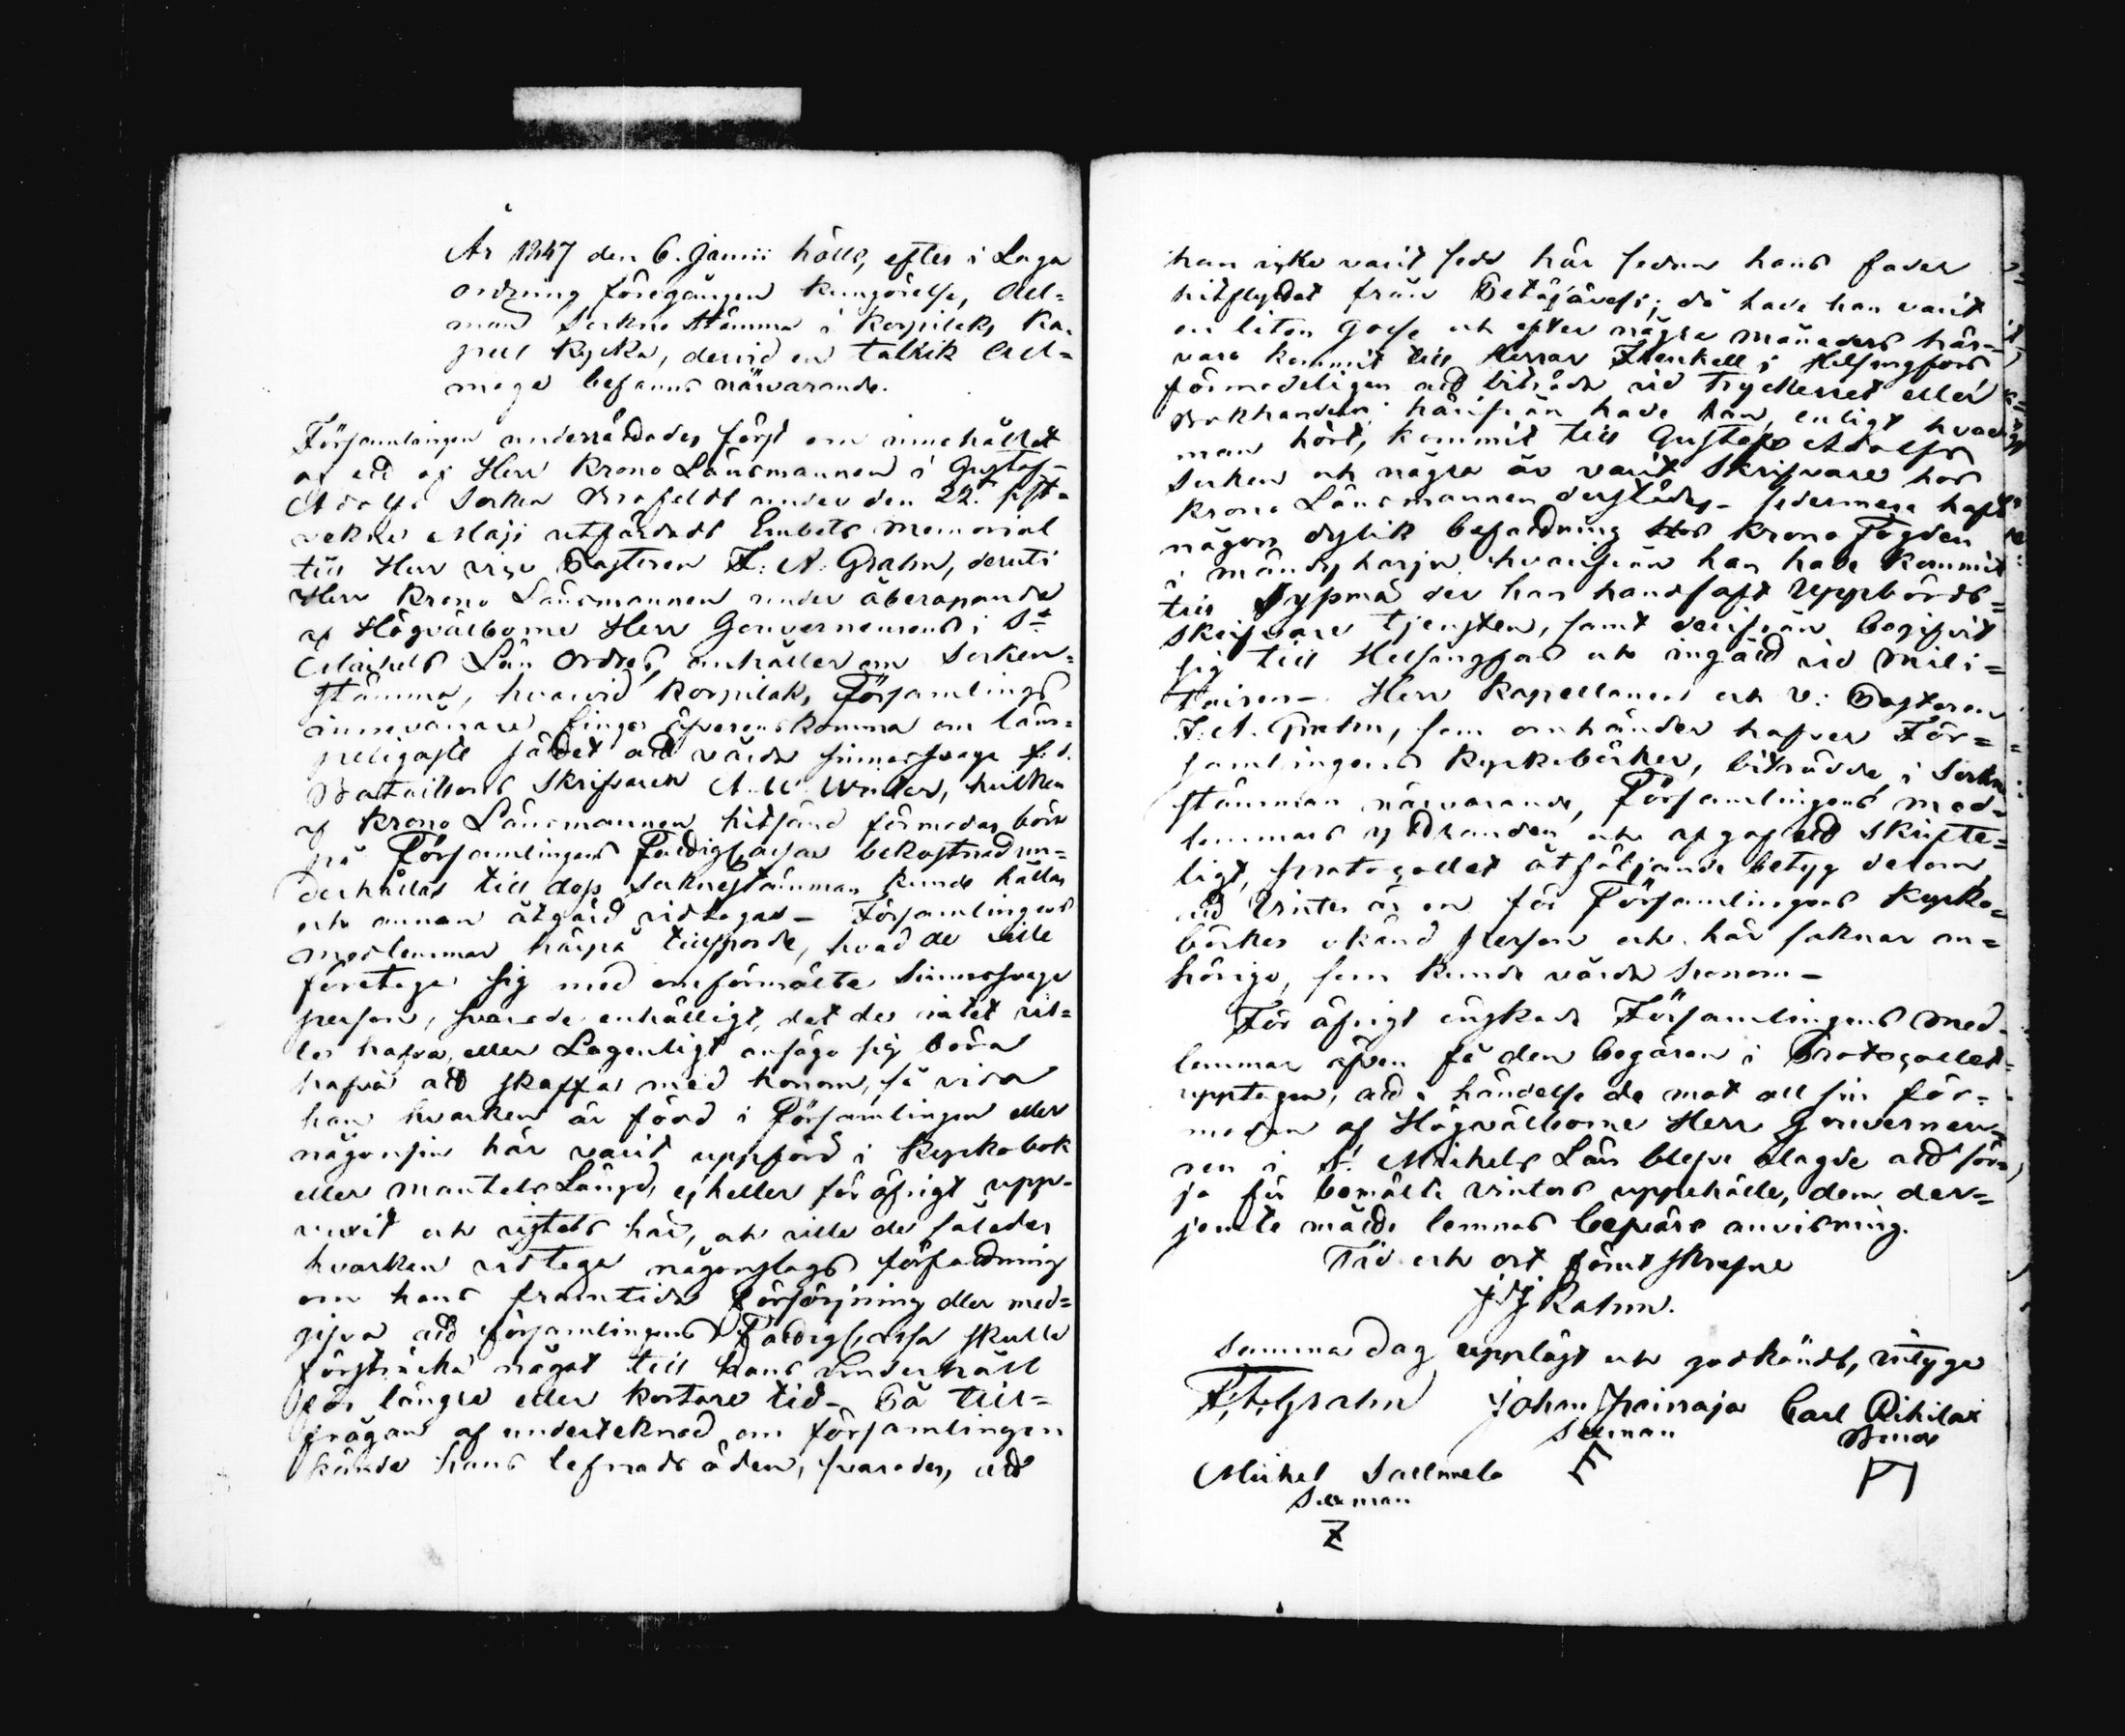 År 1847 den 6. Junii hölls, efter i Laga
ordning föregången kungörelse, All=
män Sockne Stämma i Korpilaks Ka-
pell Kyrka, dervid en talrik All=
moge befanns närvarande.
Församlingen underrättades först om innehållet
af ett af Herr Krono Länsmannen i Gustaf-
Adolfs Socken under den 22. sist-
vekne Maji utfärdadt Embets Memorial
till Herr vice Pastoren F: A: Grahn, deruti
Herr Krono Länsmannen under åberopande
af Högvälborne Herr Gouverneurens i St
Michels Län Ordres, anhåller om Socken=
stämma, hvarvid Korpilaks Församlings
innevånare finge öfverenskomma om läm=
peligaste sättet att vårda sinnessvage f. d.
Bataillons Skrifvaren A. W. Winter, hvilken
af Krono Länsmannen hitsänd förmodas böra
på Församlingens Fattigcassas bekostnad un=
derhållas till dess Socknestämman kunde hållas
och annan åtgärd vidtagas – Församlingens
medlemmar härpå tillsporde, hvad de ville
företaga sig med omförmälte Sinnessvage
person, svarade enhälligt, det de intet vil=
le hafva, eller Lagenligt ansågo sig böra
hafva att skaffa med honom, så vida
han hvarken är född i Församlingen eller
någonsin här varit uppförd i Kyrkobok
eller Mantals Längd, ej heller för öfrigt upp-
vuxit och vistats här, och ville de således
hvarken vidtaga någonslags författning
om hans framtida Försörjning eller med=
gifva att församlingens Fattigcassa skulle
försträcka något till hans Underhåll
för längre eller kortare tid – På till=
frågan af undertecknad om församlingen
kände hans lefnads öden, svarades, att
han icke varit sedd här sedan hans fader
hitflyttat från Petäjävesi; då hade han varit
en liten gosse och efter några månaders här-
varo kommit till Herrar Frenkell i Helsingfors
förmodeligen att biträda vid Tryckeriet eller
Bokhandeln; härifrån hade han, enligt hvad
man hört, kommit till Gustafs Adolfs
Socken och några år varit Skrifvare hos
Krono Länsmannen derstädes – sedermera haft
någon dylik befattning hos Krono Fogden
i Mäntyharju hvarifrån han hade kommit
till Sysmä der han handhaft Uppbörds=
Skrifvare tjensten, samt derifrån begifvit
sig till Helsingfors och ingått vid Mili=
tairen – Herr Kapellanen och v: Pastoren
F: A. Grahn, som om händer hafver För=
samlingens Kyrkoböcker, biträdde, i Sockne
stämman närvarande, Församlingens med=
lemmars yttranden och afgaf ett skrifte=
ligt, protocollet åtföljande betyg derom,
att Winter är en för Församlingens Kyrko=
böcker okänd person och här saknar an=
hörige, som kunde vårda honom –
För öfrigt önskade Församlingens Med-
lemmar äfven få den begäran i Protocollet
upptagen, att i händelse de mot all sin för=
modan af Högvälborne Herr Gouverneu=
ren i St Michels Län blefve ålagde att sör=
ja för bemälte Winters uppehälle, dem der=
jemte måtte lemnas besvärs anvisning.
Tid och ort förut skrefne
JJ Rahm.
Samma dag uppläst och godkändt, intyga
F: A: Grahn Johan Carl Rihilax
Sexman
Michel Sallmela
Sexman